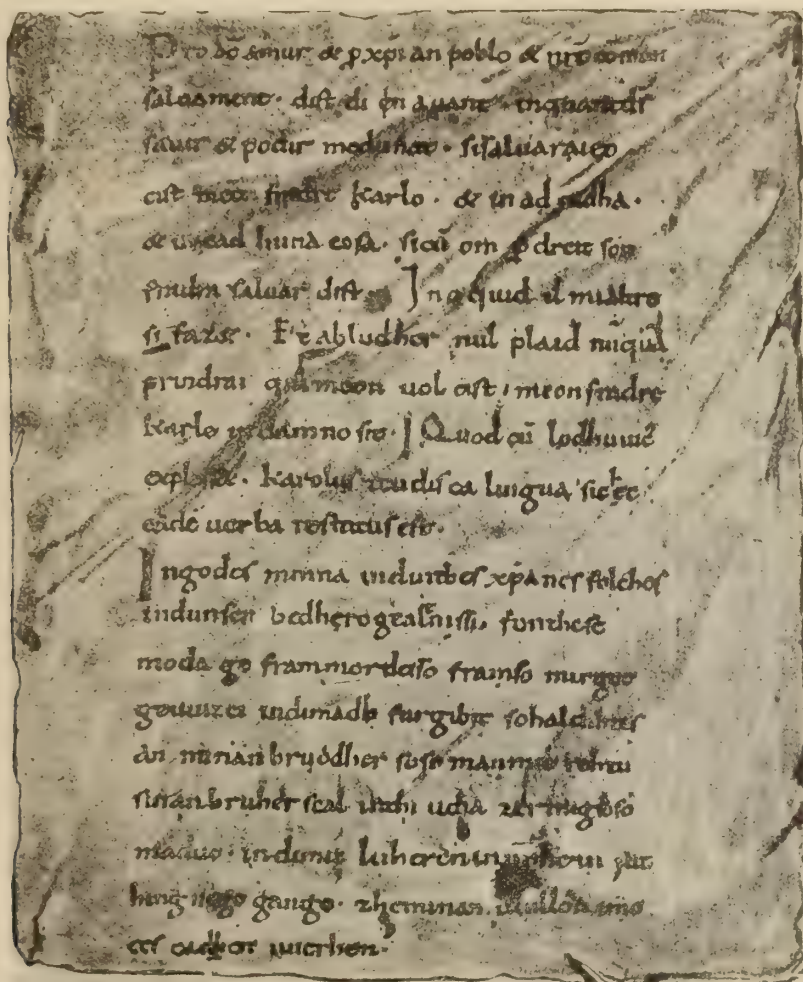 Pro dō amur & ꝑ xp̄ian poblo & nr̄o comun
saluament. dist di en auant. inquantds̄
sauir & podir medunat. sisaluaraieo
cist meon fradre Karlo. & in ad iudha.
& in cad huna cosa. sicū om ꝑ dreit son
fradra saluar dist. Ino quid il mialtre
si faz&. Et abludher nul plaid nūquā
prindrai qui meon uol cist. meonfradre
Karlo in damno sit. Quod cū lodhuuic̄
explesset. Karolus teudisca lingua sic hec
eadē uerba testatus est.
Ingodes minna indinthes xp̄anes folches
indunser bedhero gealtnissi. fonthese
moda ge frammordesso framso mirgot
geuuizci indimadh furgibit sohaldihtes
an minan bruodher soso manmit rehtu
sinan bruher scal inthi utha zermigsoso
maduo. indimit luheren innohein iut
hing nege gango. zheminan uuillon imo
ces cadhen uuerhen.